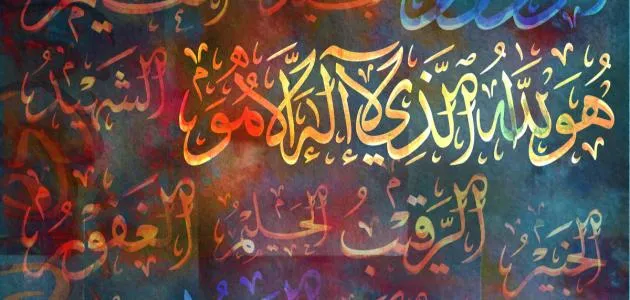 هُوَ اللَّهُ الَّذِي لَا إِلَهَ إِلَّا هُوَ الشَّهِيدُ
الخَبِيرُ الرَّقِيبُ الحَلِيمُ الغَفُورُ